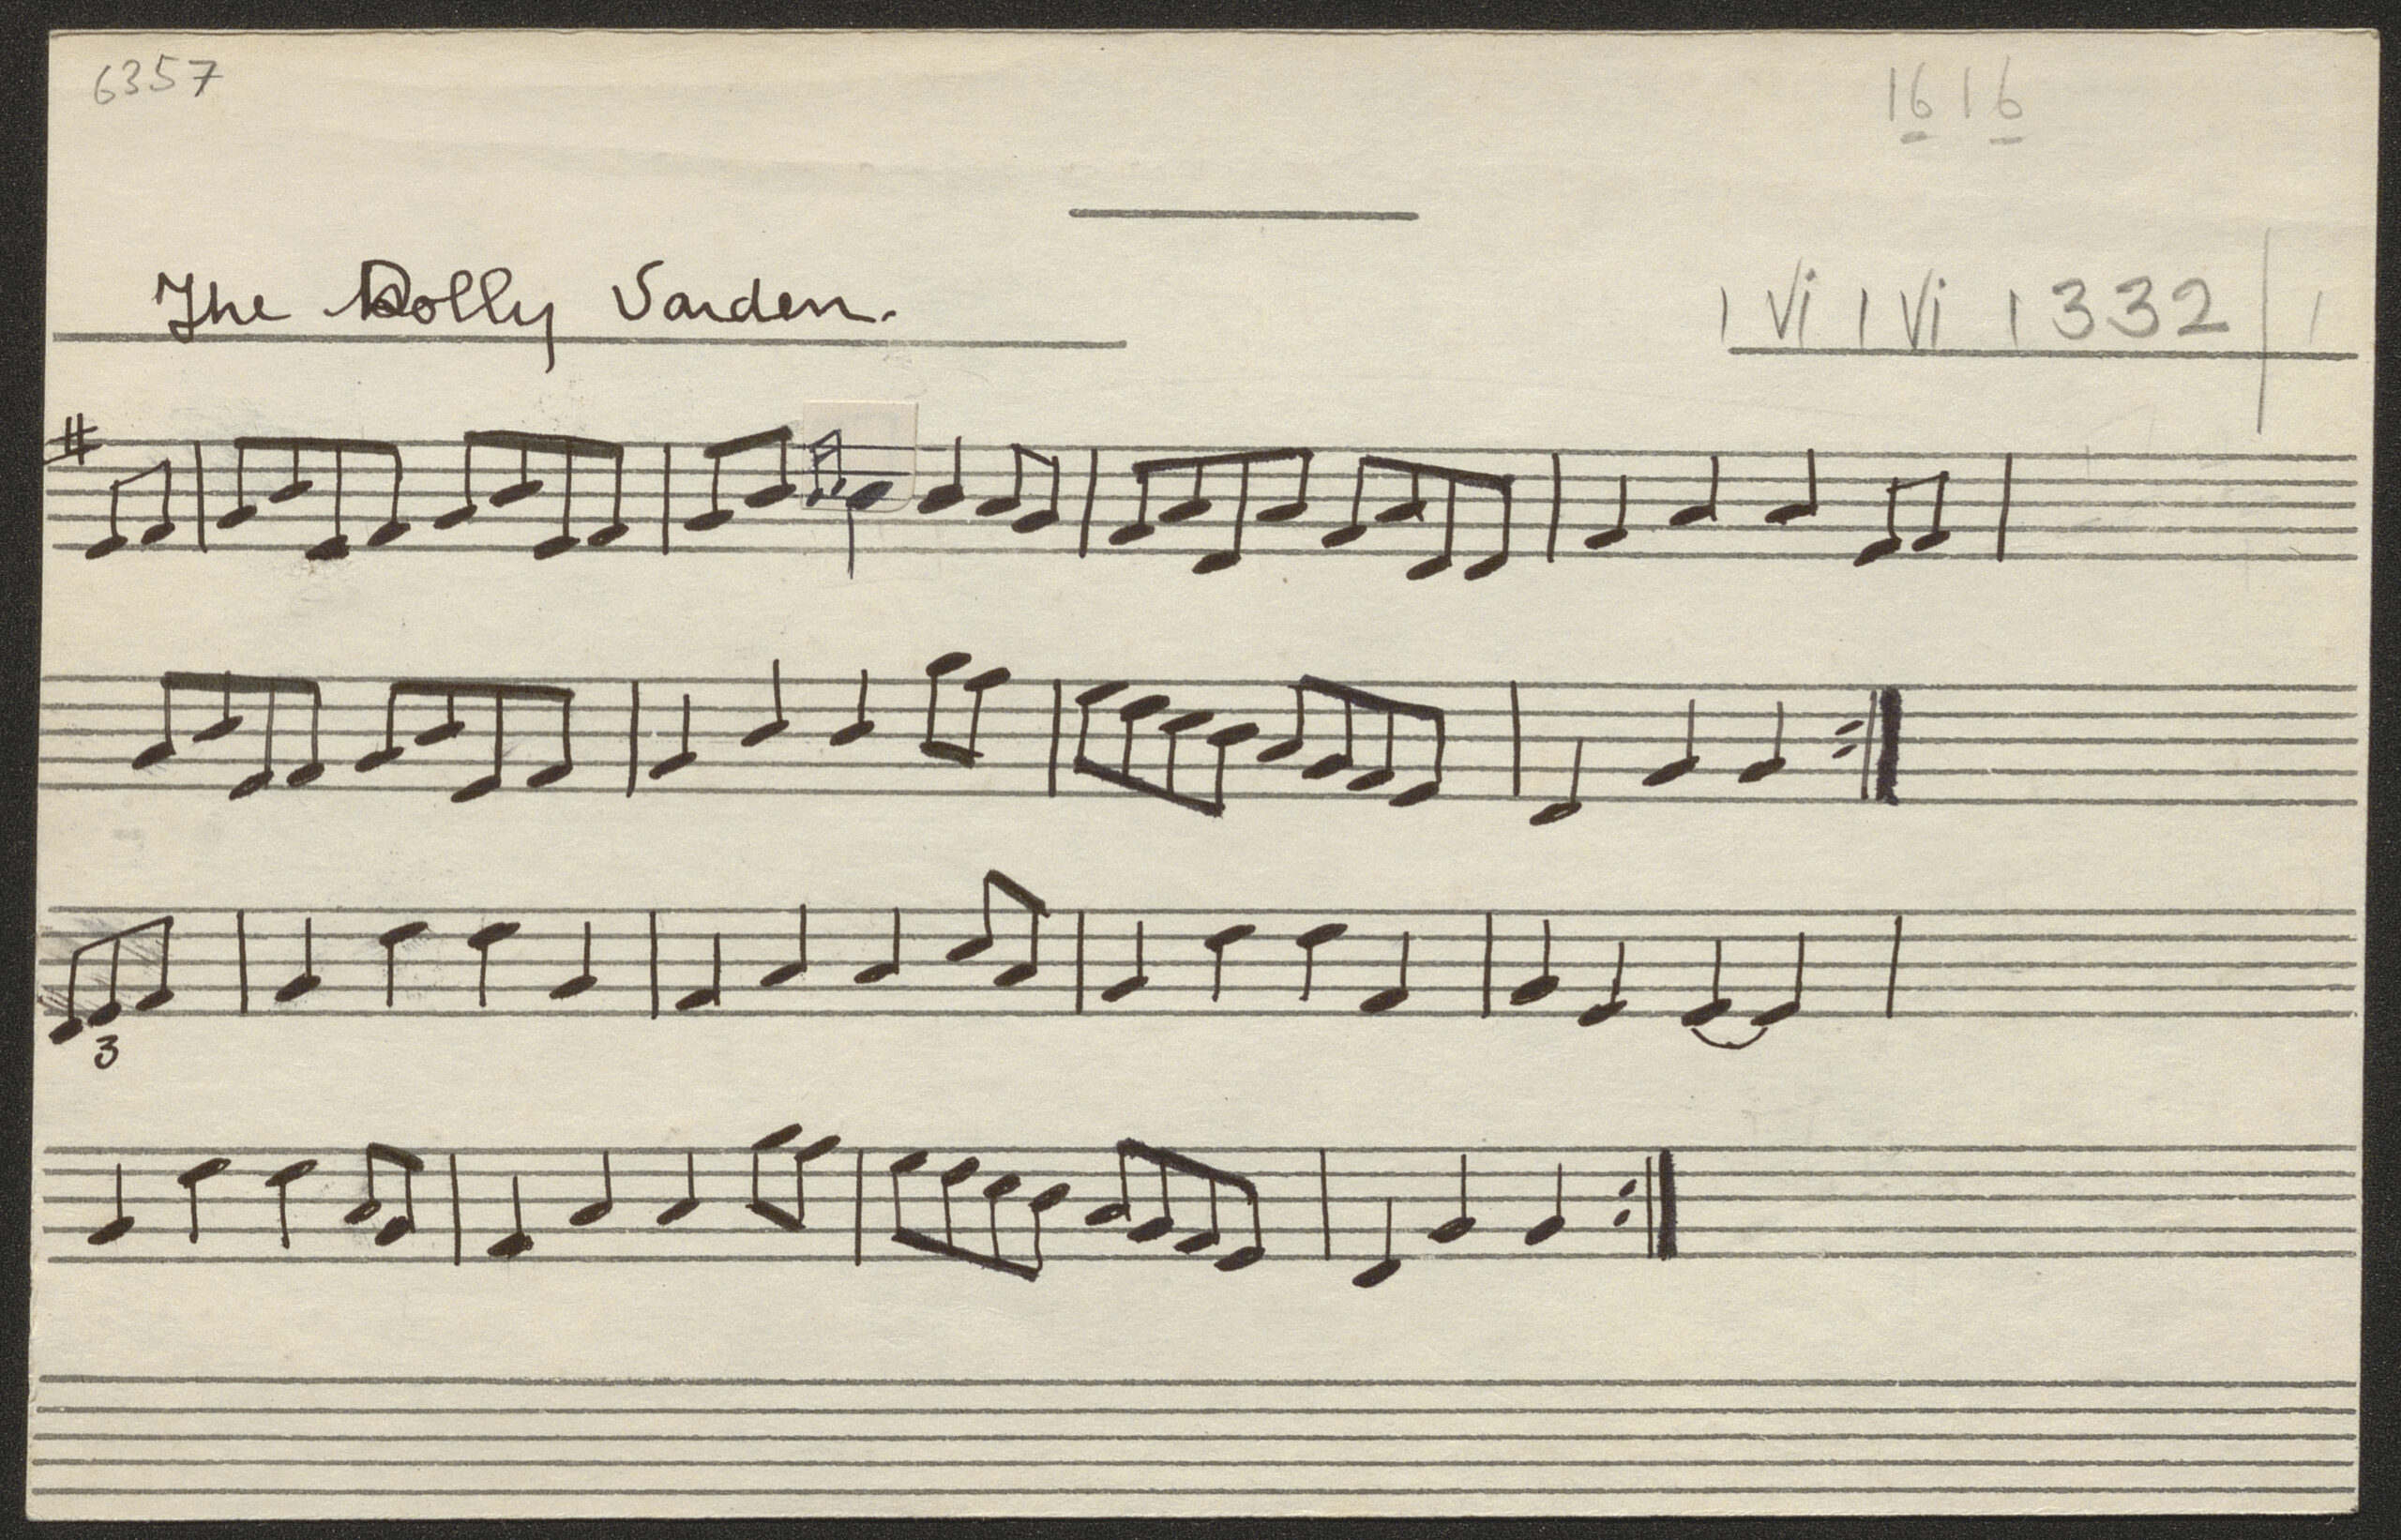 6357
1616
The Dolly Varden.
1 Vi 1 Vi 1 332 | 1
3